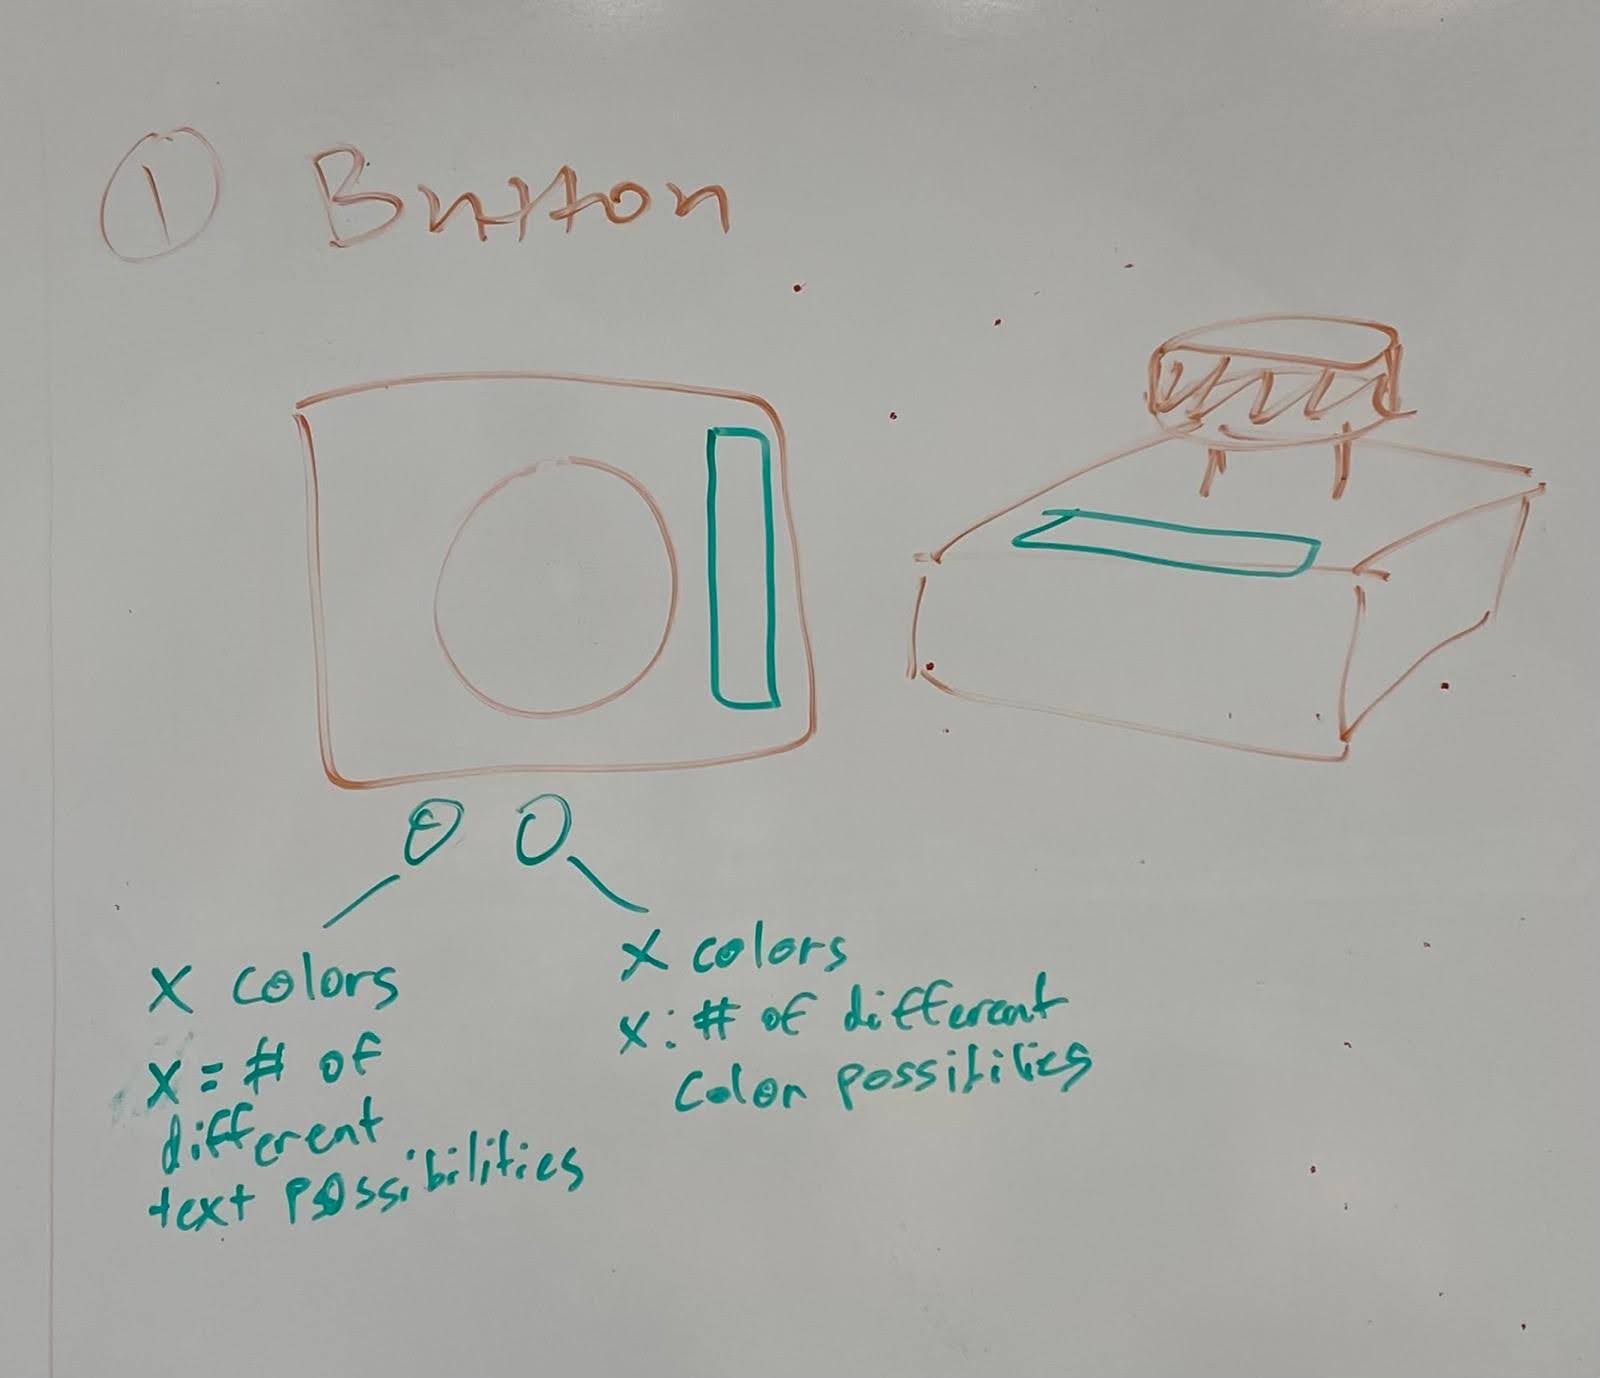 1 Button
X colors
X = # of
different
text possibilities
X colors
X: # of different
color possibilities